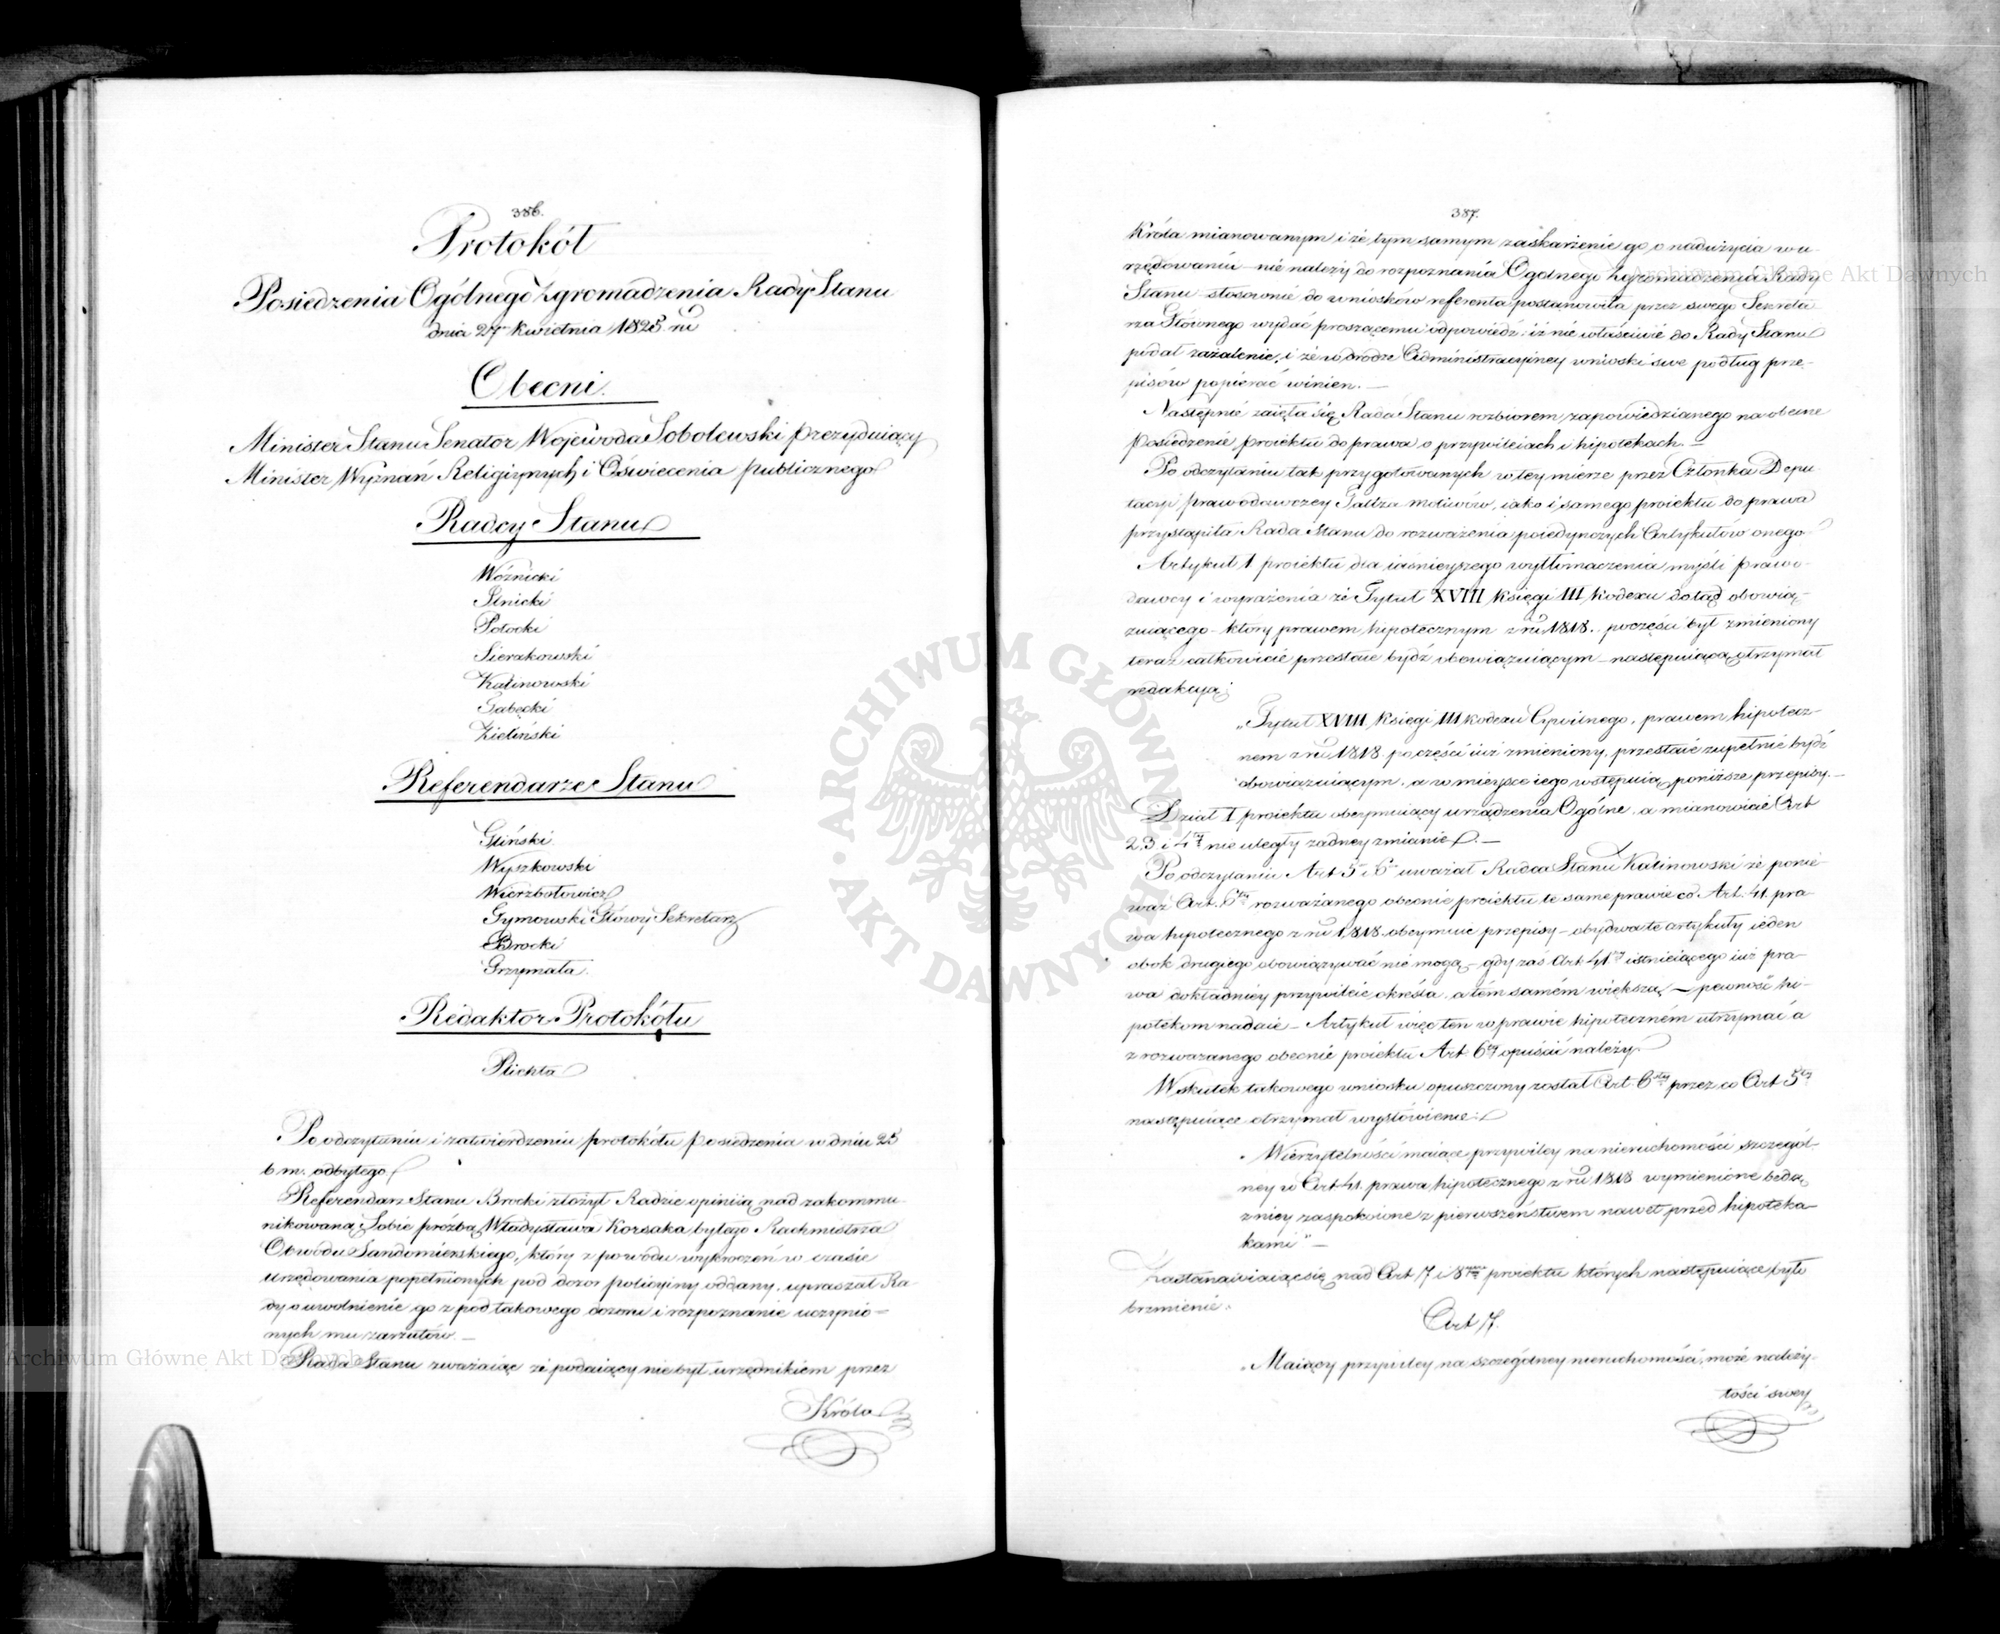 386.
Protokół
Posiedzenia Ogólnego Zgromadzenia Rady Stanu
dnia 27 kwietnia 1825. ru
Obecni.
Minister Stanu Senator Woiewoda Sobolewski prezyduiący
Minister Wyznań Religiynych i Oświecenia publicznego
Radcy Stanu
Woźnicki
Potocki
Sierakowski
Kalinowski
Zieliński
Referendarze Stanu
Gliński
Wyszkowski
Wierzbołowicz
Gymowski Głowy Sekretarz
Brocki
Grzymała.
Redaktor Protokółu
Plichta
Po odczytaniu i zatwierdzeniu protokółu posiedzenia w dniu 25
b m. odbytego
Referendarz Stanu Brocki złożył Radzie opiniią nad zakommu-
nikowaną Sobie prośbą Władysława Korsaka byłego Rachmistrza
Obwodu Sandomierskiego, który z powodu wykroczeń w czasie
urzędowania popełnionych pod dozor policyiny oddany, upraszał Ra
dy o uwolnienie go z pod takowego dozoru i rozpoznanie uczynio=
nych mu zarzutów. —
Rada Stanu zważaiąc że podaiący nie był urzędnikiem przez
Króla
387.
Króla mianowanym i że tym samym zaskarżenie go o nadużycia w u-
rzędowaniu nie należy do rozpoznania Ogólnego Zgromadzenia Rady
Stanu stosownie do wniosków referenta postanowiła przez swego Sekreta
rza Głównego wydać proszącemu odpowiedź; iż nie właściwie do Rady Stanu
podał zażalenie, i że w drodze Administracyiney wnioski swe podług prze-
pisów popierać winien. —
Następnie zaięła się Rada Stanu rozbiorem zapowiedzianego na obecne
Posiedzenie proiektu do prawa o przywileiach i hipotekach. —
Po odczytaniu tak przygotowanych w tey mierze przez Członka Depu
tacyi prawodawczey motiwów, iako i samego proiektu do prawa
przystąpiła Rada Stanu do rozważenia poiedynczych Artykułów onego
Artykuł 1 proiektu dla iaśnieyszego wytłomaczenia myśli prawo-
dawcy i wyrażenia że Tytuł XVIII Księgi III Kodexu dotąd obowią-
zuiącego - który prawem hipotecznym z ru 1818. poczęsci był zmieniony
teraz całkowicie przestaie bydź obowiązuiącym - następuiącą otrzymał
redakcyą:
„Tytuł XVIII Księgi III Kodexu Cywilnego, prawem hipotecz-
nem z ru 1818 po części iuż zmieniony, przestaie zupełnie bydź
obowiązuiącym, a w mieysce iego wstępuią poniższe przepisy. —
Dział I proiektu obeymuiący urządzenia Ogólne, a mianowicie Art
2.3 i 4ty nie uległy żadney zmianie. —
Po odczytaniu Art 5 i 6 uważał Radca Stanu Kalinowski że ponie-
waż Art. 6ty rozważanego obecnie proiektu te same prawie co Art. 41. pra-
wa hipotecznego z ru 1818 obeymuie przepisy - obydwa te artykuły ieden
obok drugiego obowiązywać nie mogą - gdy zaś Art 41ty istnieiącego iuż pra-
wa dokładniey przywileie określa, a tém samém większą — pewność hi-
potekom nadaie - Artykuł więc ten w prawie hipoteczném utrzymać a
z rozważanego obecnie proiektu Art 6ty opuścić należy.
W skutek takowego wniosku opuszczony został Art. 6sty przez co Art 5ty
następuiące otrzymał wysłowienie:
„Wierzytelności maiące przywiley na nieruchomości szczegól-
ney w Art 41. prawa hipotecznego z ru 1818 wymienione będą
z niey zaspokoione z pierwszeństwem nawet przed hipoteka-
kami" —
Zastanawiaiąc się nad Art 7 i 8 proiektu których następuiące było
brzmienie.
Art 7.
„Maiący przywiley na szczególney nieruchomości, może należy-
tości swey
Archiwum Główne Akt Dawnych
Archiwum Główne Akt Dawnych
ARCHIWUM GŁÓWNE • AKT DAWNYCH •